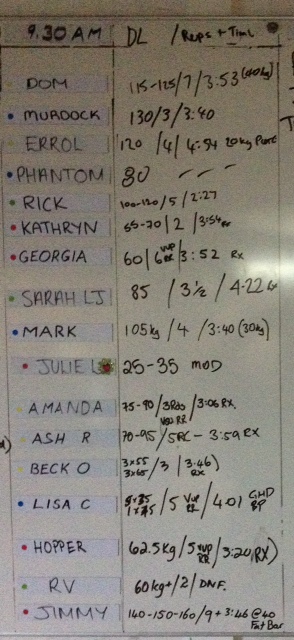 9.30 AM DL /Reps + Time
DOM 115-125/7/3.53 (40kg)
MURDOCK 130/3/3:40
ERROL 120 /4/4:54 20kg
PHANTOM 80
RICK 100-120/5/2:27
KATHRYN 55-70/2/3:54
GEORGIA 60/6 RR/3:52 RX
SARAH LJ 85 /3½/4.22
MARK 105kg/4/3:40 (30kg)
JULIE L 25-35 MOD
AMANDA 75-90/3 /3:06 RX
ASH R 70-95/5RC-3:59 RX
BECK O 3x55 3x65/3/3.46) RX
LISA C 1x75/5 VUP RR/4.01 GHD
HOPPER 62.5kg/5 VUP RR/3:20(RX)
RV 60kg+/2/DNF.
JIMMY 140-150-160/9+3:46 @40
Fat Bar